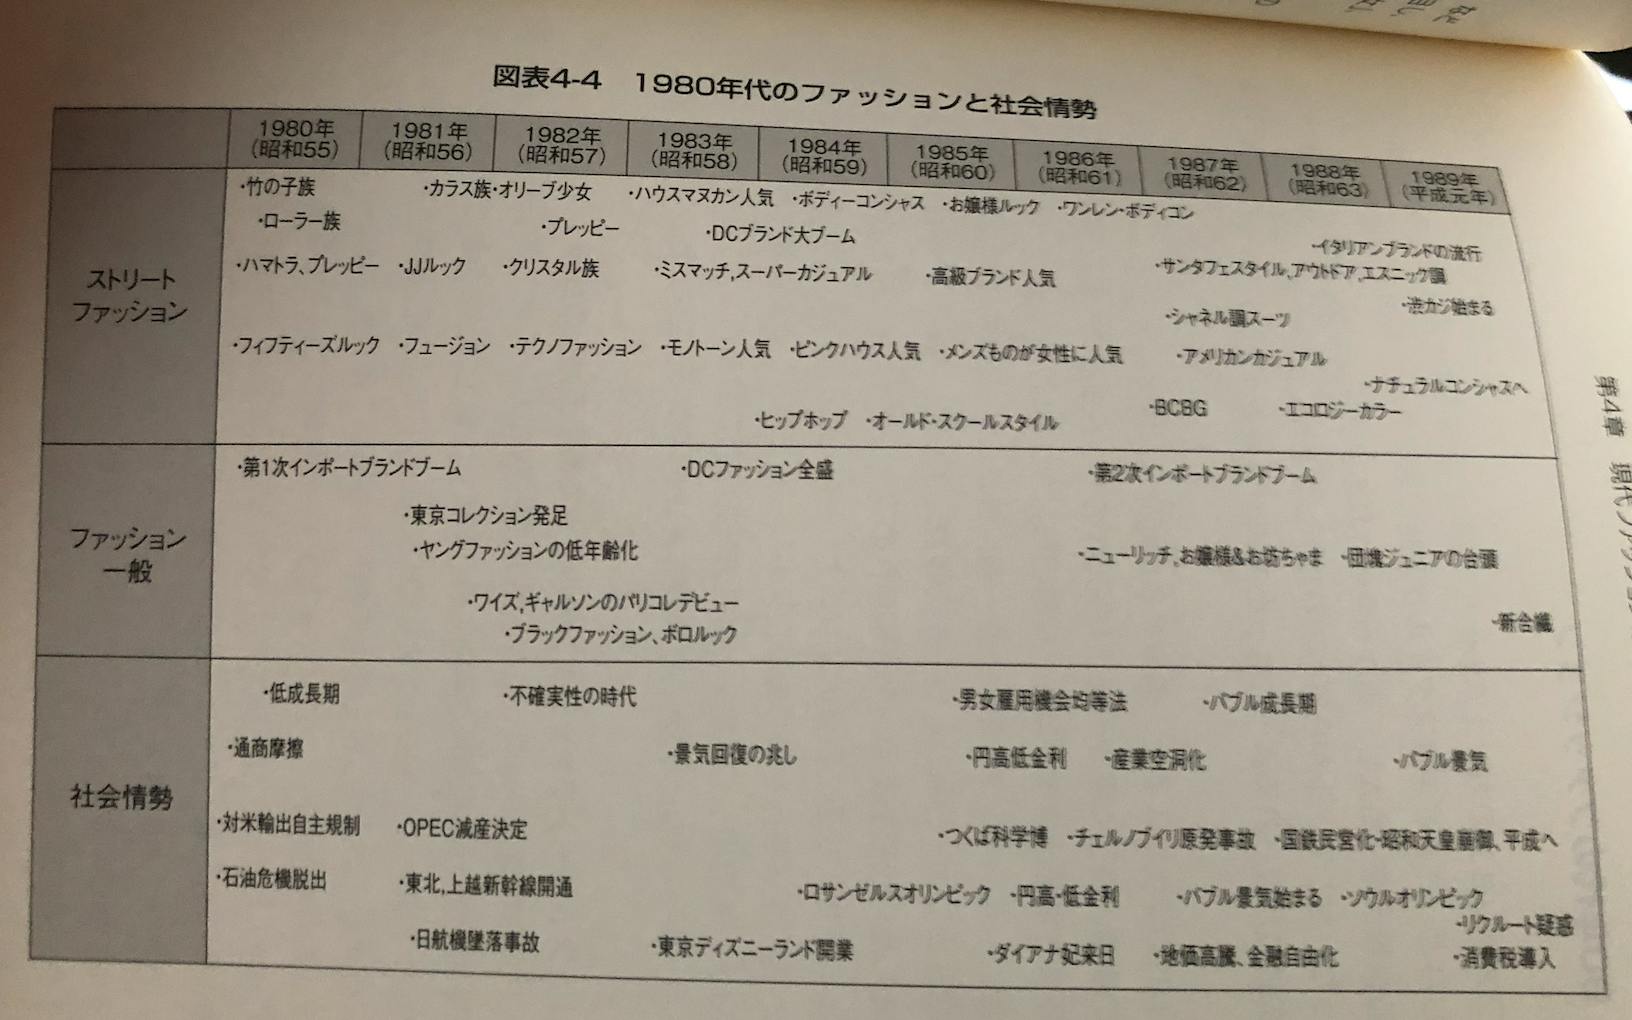 図表4-4　1980年代のファッションと社会情勢
1980年 1981年 1982年 1983年 1984年 1985年 1986年 1987年 1988年 1989年
(昭和55) (昭和56) (昭和57) (昭和58) (昭和59) (昭和60) (昭和61) (昭和62) (昭和63) (平成元年)
ストリート
ファッション
・竹の子族 ・カラス族・オリーブ少女 ・ハウスマヌカン人気 ・ボディーコンシャス ・お嬢様ルック ・ワンレン・ボディコン
・ローラー族 ・プレッピー ・DCブランド大ブーム ・イタリアンブランドの流行
・ハマトラ、プレッピー ・JJルック ・クリスタル族 ・ミスマッチ,スーパーカジュアル ・高級ブランド人気 ・サンタフェスタイル,アウトドア,エスニック調
・シャネル調スーツ ・渋カジ始まる
・フィフティーズルック ・フュージョン ・テクノファッション ・モノトーン人気 ・ピンクハウス人気 ・メンズものが女性に人気 ・アメリカンカジュアル
・ナチュラルコンシャスへ
・ヒップホップ ・オールド・スクールスタイル ・BCBG ・エコロジーカラー
ファッション
一般
・第1次インポートブランドブーム ・DCファッション全盛 ・第2次インポートブランドブーム
・東京コレクション発足
・ヤングファッションの低年齢化 ・ニューリッチ,お嬢様&お坊ちゃま ・団塊ジュニアの台頭
・ワイズ,ギャルソンのパリコレデビュー ・新合繊
・ブラックファッション、ボロルック
社会情勢
・低成長期 ・不確実性の時代 ・男女雇用機会均等法 ・バブル成長期
・通商摩擦 ・景気回復の兆し ・円高低金利 ・産業空洞化 ・バブル景気
・対米輸出自主規制 ・OPEC減産決定 ・つくば科学博 ・チェルノブイリ原発事故 ・国鉄民営化・昭和天皇崩御、平成へ
・石油危機脱出 ・東北,上越新幹線開通 ・ロサンゼルスオリンピック ・円高・低金利 ・バブル景気始まる ・ソウルオリンピック
・リクルート疑惑
・日航機墜落事故 ・東京ディズニーランド開業 ・ダイアナ妃来日 ・地価高騰、金融自由化 ・消費税導入
第4章　現代ファッション